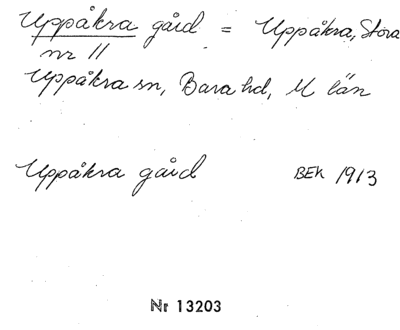 Uppåkra gård = Uppåkra, Stora
nr 11
Uppåkra sn, Bara hd, M län
Uppåkra gård BEK 1913
Nr 13203